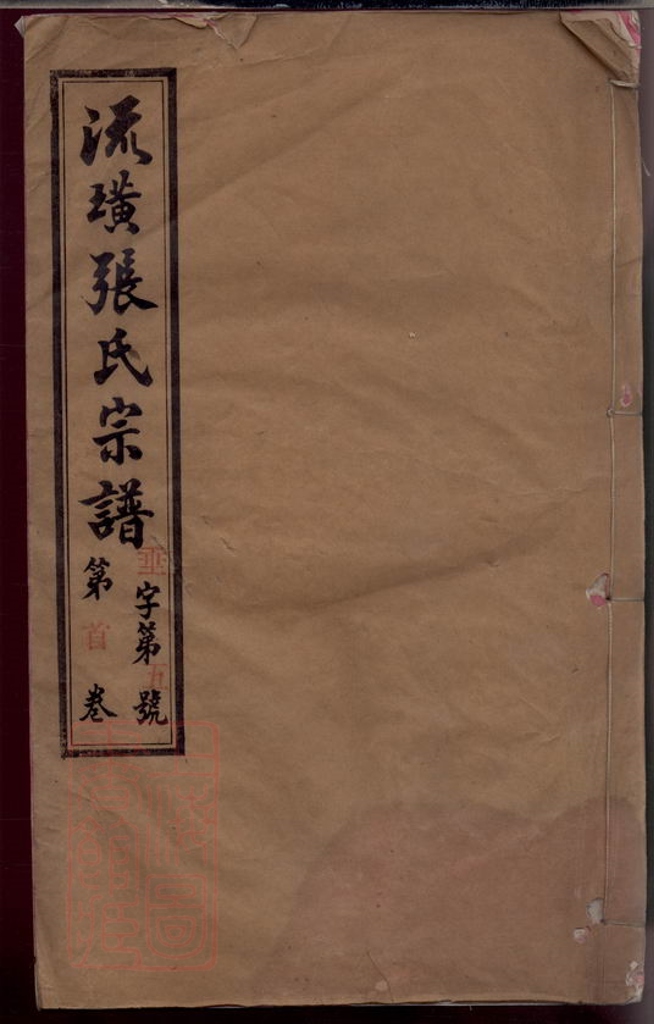 流璜張氏宗譜
垂字第五號
第首卷